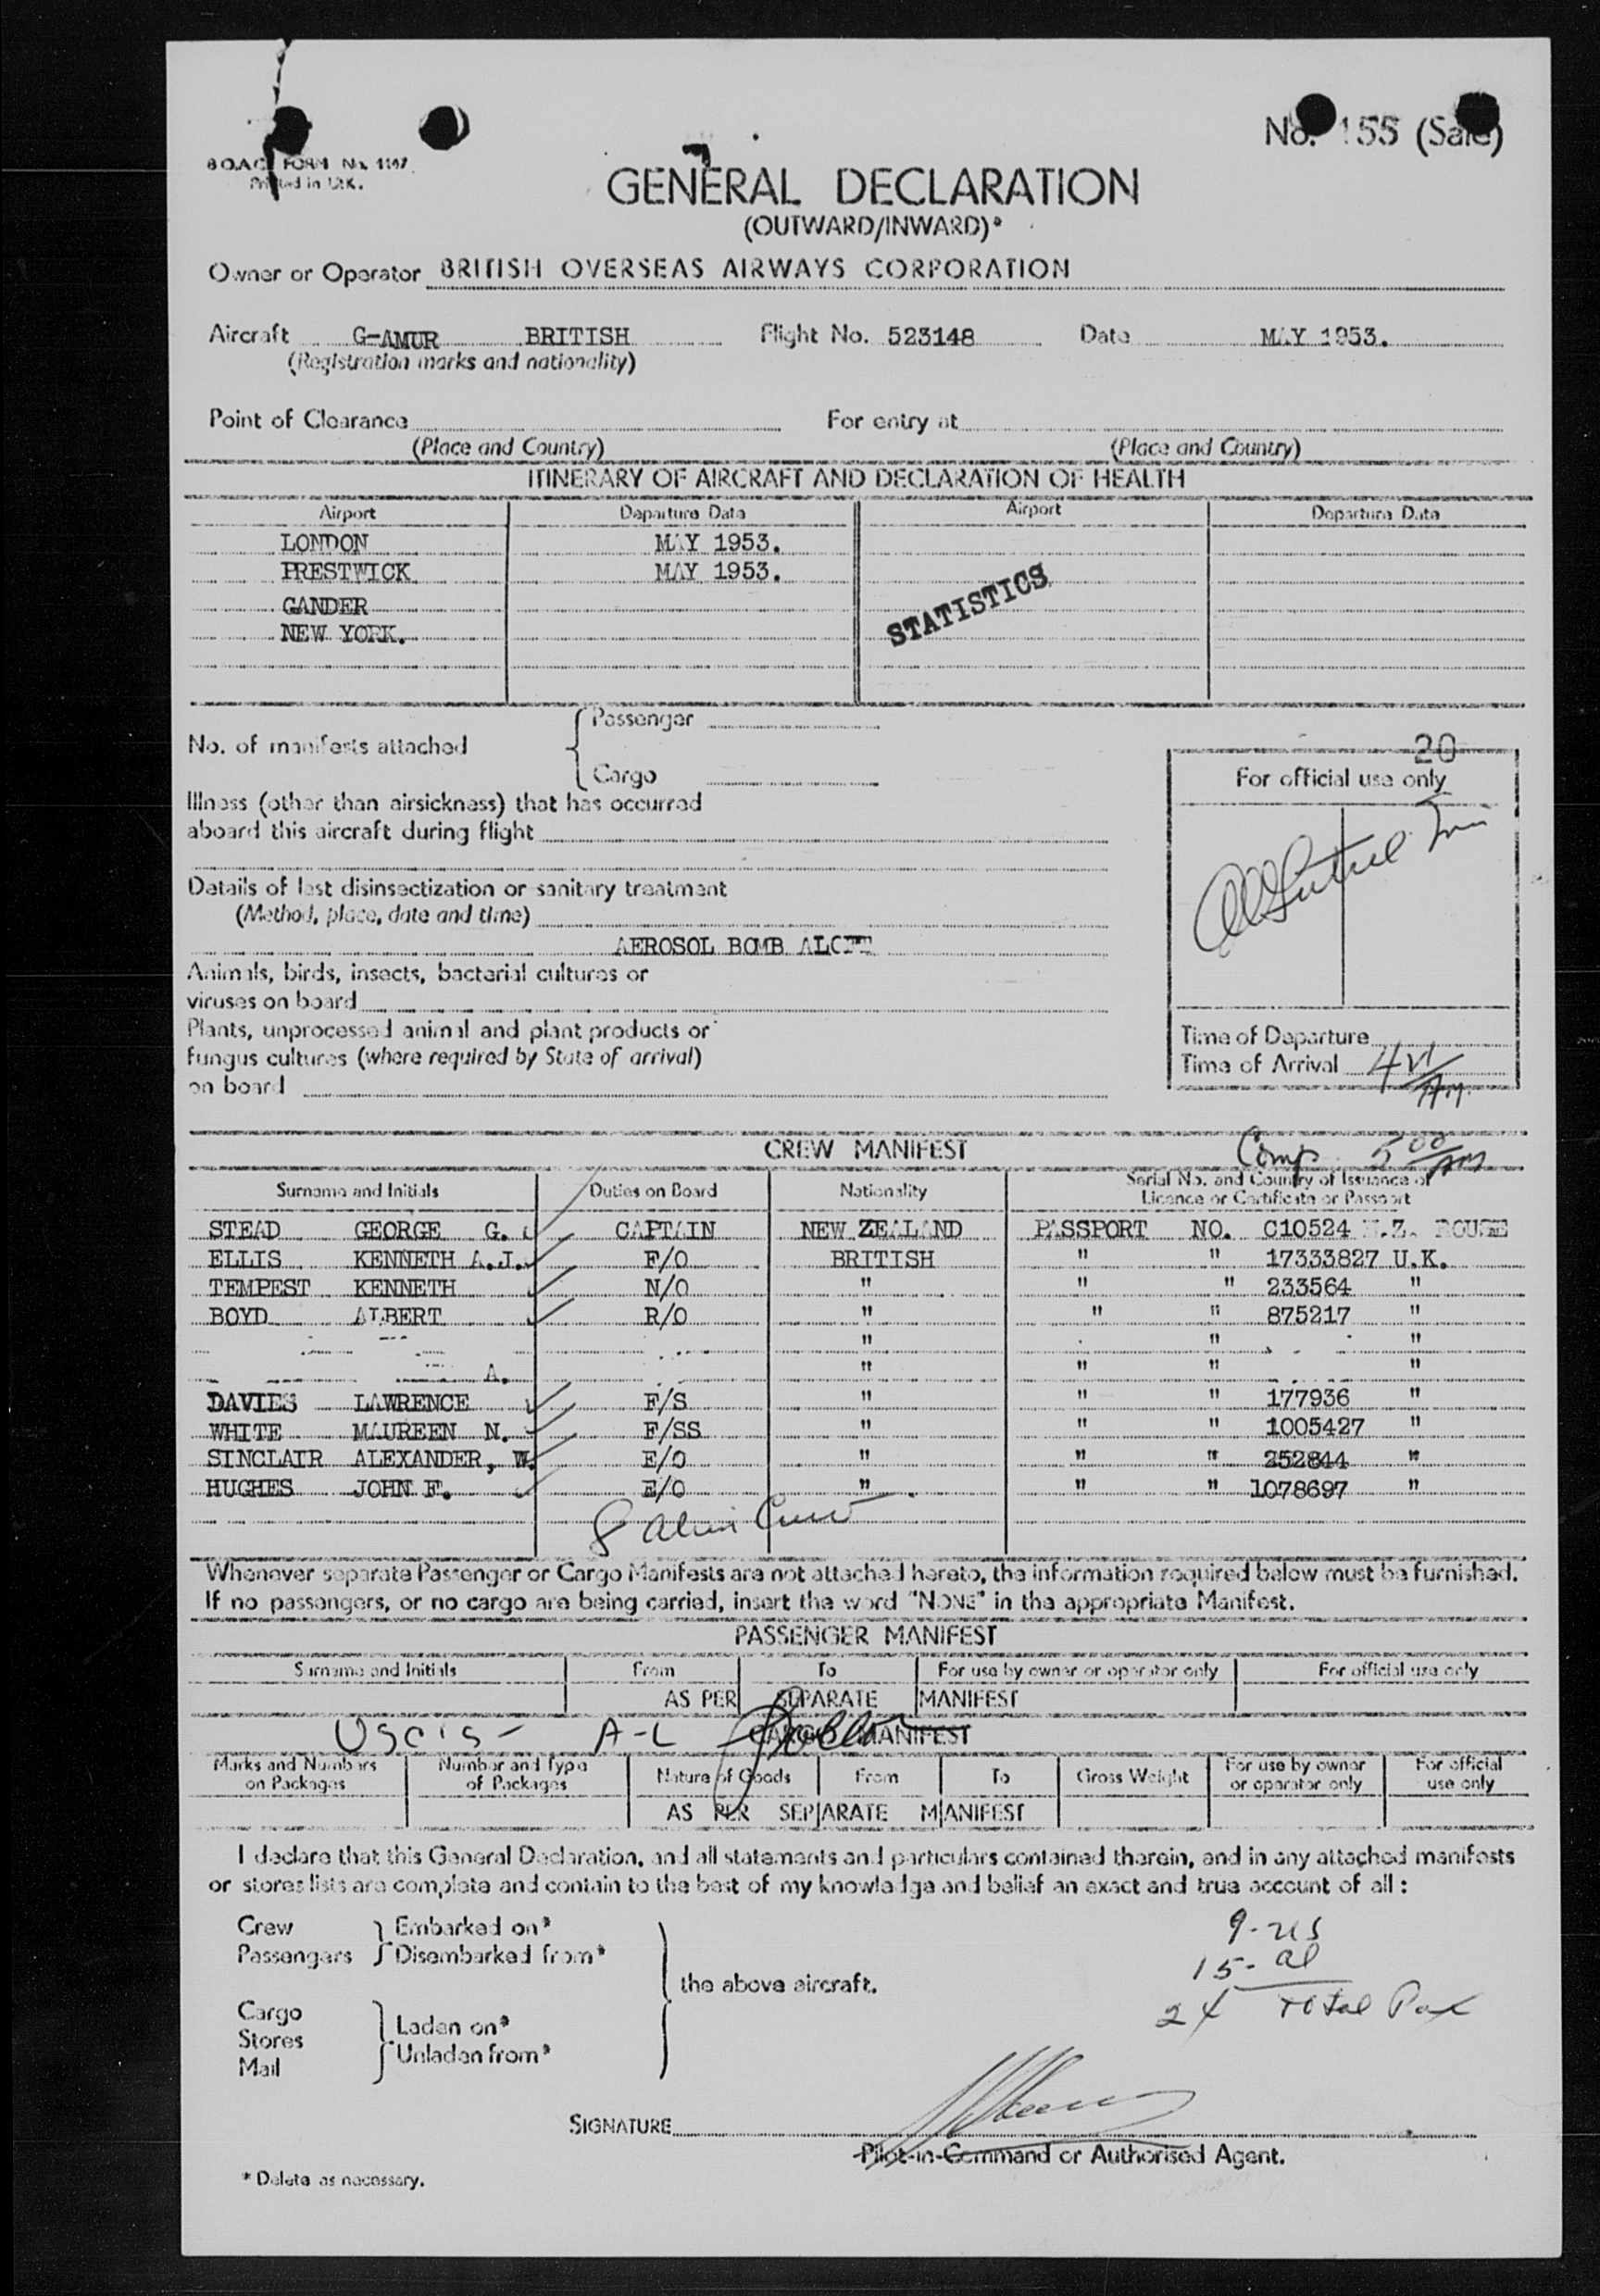 No. 155 (Sale)
B.O.A.C. FORM No. 1147
Printed in U.K.
GENERAL DECLARATION
(OUTWARD/INWARD)*
Owner or Operator BRITISH OVERSEAS AIRWAYS CORPORATION
Aircraft G-AMUR BRITISH Flight No. 523148 Date MAY 1953.
(Registration marks and nationality)
Point of Clearance For entry at
(Place and Country) (Place and Country)
ITINERARY OF AIRCRAFT AND DECLARATION OF HEALTH
Airport Departure Date Airport Departure Date
LONDON MAY 1953.
PRESTWICK MAY 1953.
GANDER
NEW YORK.
STATISTICS
No. of manifests attached { Passenger
Cargo
Illness (other than airsickness) that has occurred
aboard this aircraft during flight
Details of last disinsectization or sanitary treatment
(Method, place, date and time)
AEROSOL BOMB ALOFT
Animals, birds, insects, bacterial cultures or
viruses on board
Plants, unprocessed animal and plant products or
fungus cultures (where required by State of arrival)
on board
20
For official use only
Time of Departure
Time of Arrival 4 AM
CREW MANIFEST
Comp 5 00 AM
Surname and Initials Duties on Board Nationality Serial No. and Country of Issuance of
Licence or Certificate or Passport
STEAD GEORGE G. CAPTAIN NEW ZEALAND PASSPORT NO. C10524 N.Z. HOUSE
ELLIS KENNETH A.J. F/O BRITISH " " 17333827 U.K.
TEMPEST KENNETH N/O " " " 233564 "
BOYD ALBERT R/O " " " 875217 "
" " "
A. " " " "
DAVIES LAWRENCE F/S " " " 177936 "
WHITE MAUREEN N. F/SS " " " 1005427 "
SINCLAIR ALEXANDER, W. E/O " " " 252844 "
HUGHES JOHN F. E/O " " " 1078697 "
8 alien Crew
Whenever separate Passenger or Cargo Manifests are not attached hereto, the information required below must be furnished.
If no passengers, or no cargo are being carried, insert the word "NONE" in the appropriate Manifest.
PASSENGER MANIFEST
Surname and Initials From To For use by owner or operator only For official use only
AS PER SEPARATE MANIFEST
USCIS - A-L
CARGO MANIFEST
Marks and Numbers on Packages Number and Type of Packages Nature of Goods From To Gross Weight For use by owner or operator only For official use only
AS PER SEPARATE MANIFEST
I declare that this General Declaration, and all statements and particulars contained therein, and in any attached manifests
or stores lists are complete and contain to the best of my knowledge and belief an exact and true account of all :
Crew } Embarked on*
Passengers } Disembarked from*
the above aircraft.
Cargo
Stores } Laden on*
Mail } Unladen from*
9 - US
15 - al
24 Total Pax
SIGNATURE
Pilot-in-Command or Authorised Agent.
* Delete as necessary.